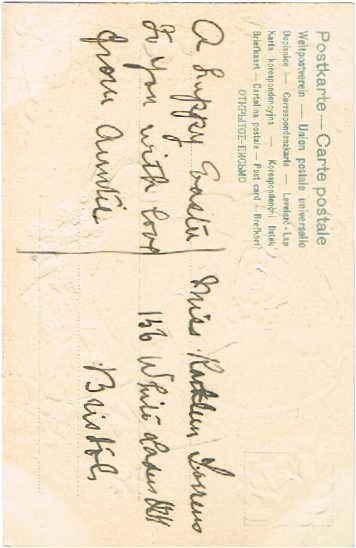 Postkarte — Carte postale
Weltpostverein — Union postale universelle
Dopisnice — Correspondenzkarte — Levelező-Lap
Karta korespondencyjna — Korespondenční lístek
Briefkaart — Cartolina postale — Post card — Brefkort
ОТКРЫТОЕ ПИСЬМО
A happy Easter
To you with love
from Auntie
Miss
156 White
Bristol